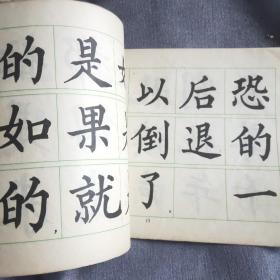 的是
如果
的,就
以后恐
倒退的
了,一